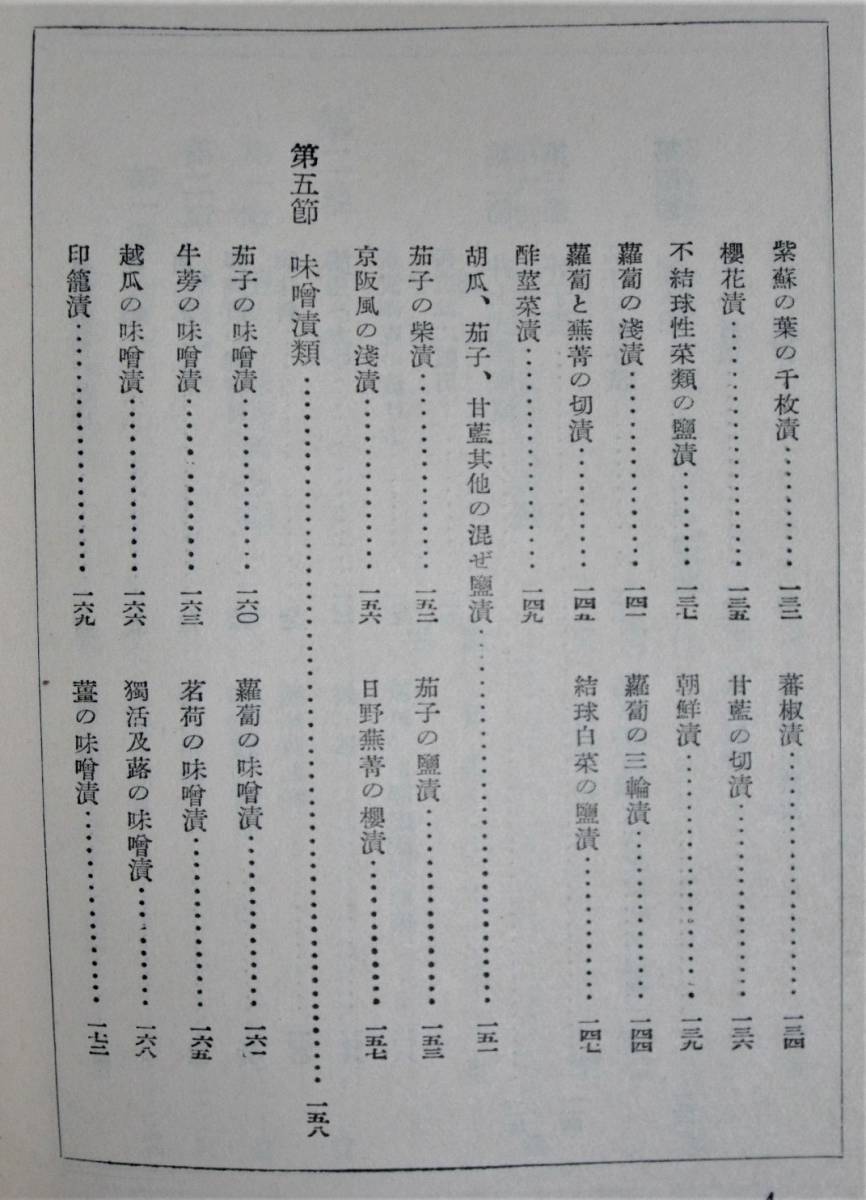 紫蘇の葉の千枚漬‥‥‥‥‥一三二　蕃椒漬‥‥‥‥‥‥‥‥‥一三四
櫻花漬‥‥‥‥‥‥‥‥‥一三五　甘藍の切漬‥‥‥‥‥‥‥一三六
不結球性菜類の鹽漬‥‥‥‥一三七　朝鮮漬‥‥‥‥‥‥‥‥‥一三九
蘿蔔の淺漬‥‥‥‥‥‥‥一四一　蘿蔔の三輪漬‥‥‥‥‥‥一四四
蘿蔔と蕪菁の切漬‥‥‥‥‥一四五　結球白菜の鹽漬‥‥‥‥‥一四七
酢莖菜漬‥‥‥‥‥‥‥‥一四九
胡瓜、茄子、甘藍其他の混ぜ鹽漬‥‥‥‥‥‥‥‥‥‥‥一五一
茄子の柴漬‥‥‥‥‥‥‥一五二　茄子の鹽漬‥‥‥‥‥‥‥一五三
京阪風の淺漬‥‥‥‥‥‥一五六　日野蕪菁の櫻漬‥‥‥‥‥一五七
第五節　味噌漬類‥‥‥‥‥‥‥‥‥‥‥‥‥‥‥‥‥‥一五八
茄子の味噌漬‥‥‥‥‥‥一六〇　蘿蔔の味噌漬‥‥‥‥‥‥一六一
牛蒡の味噌漬‥‥‥‥‥‥一六三　茗荷の味噌漬‥‥‥‥‥‥一六五
越瓜の味噌漬‥‥‥‥‥‥一六六　獨活及蕗の味噌漬‥‥‥‥一六八
印籠漬‥‥‥‥‥‥‥‥‥一六九　薑の味噌漬‥‥‥‥‥‥‥一七二